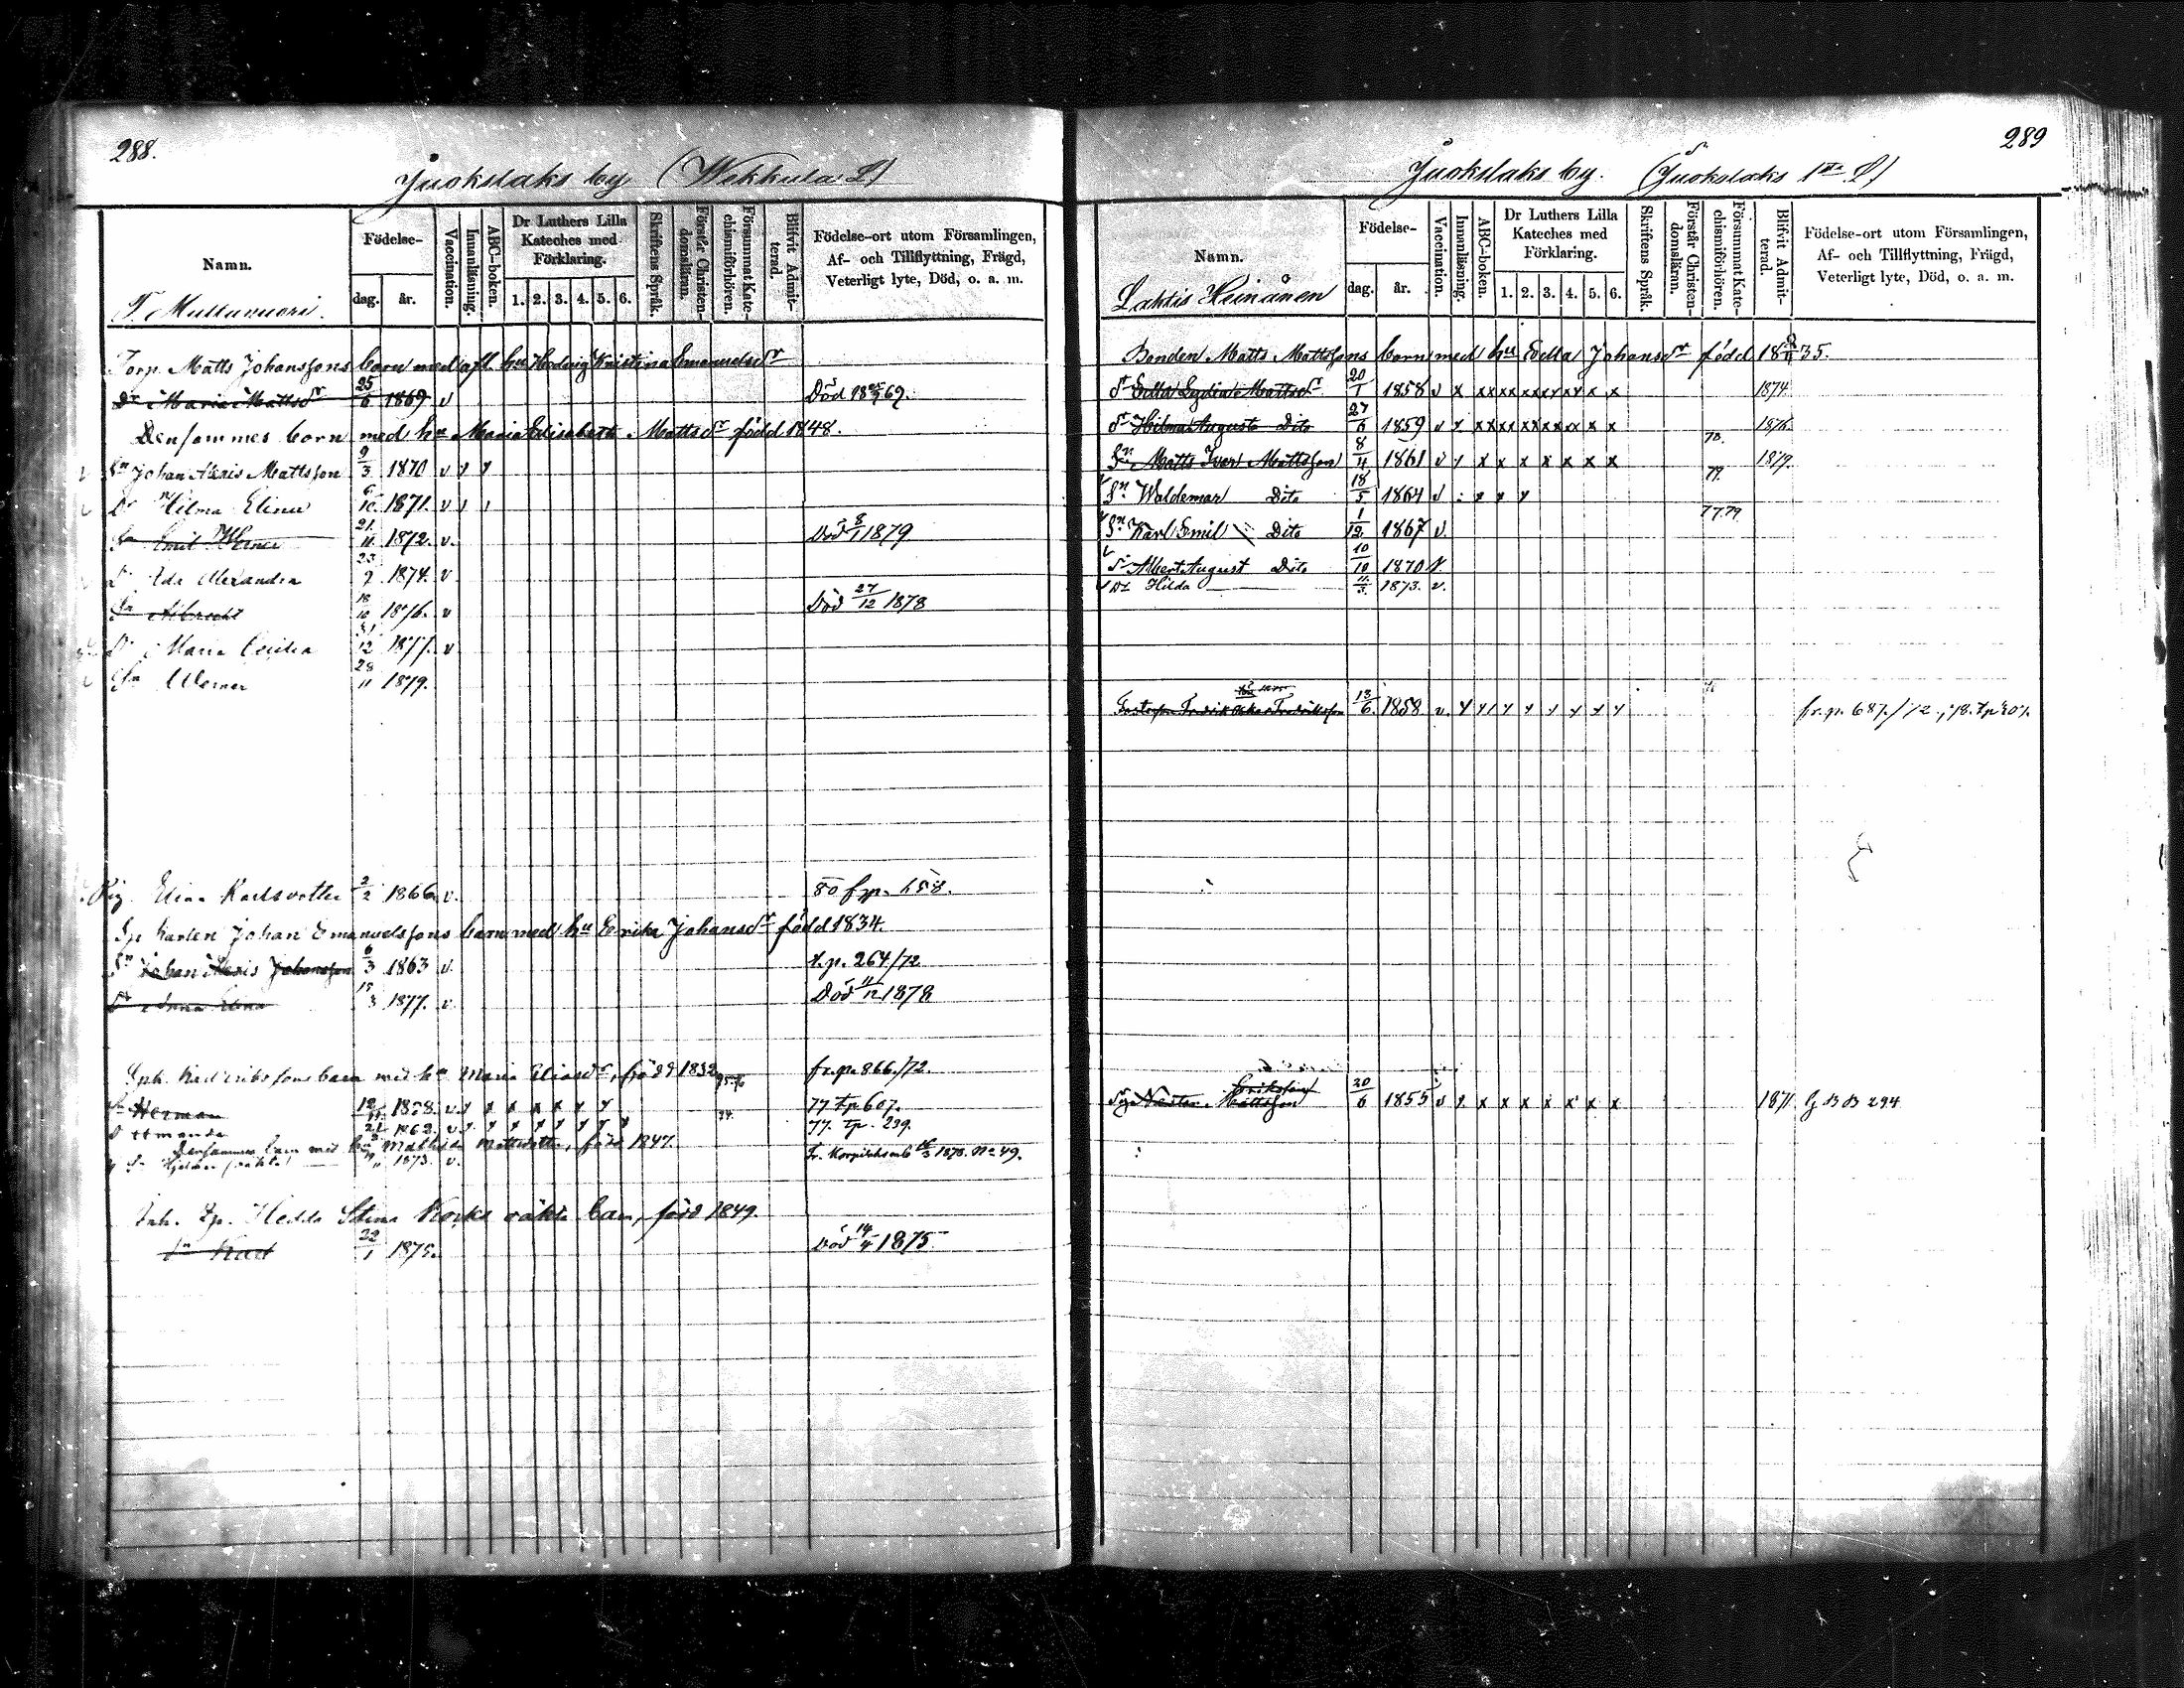 288.
Juokslaks by (Wekkula L)
Namn.
Födelse-
dag. år.
Vaccination.
Innanläsning.
ABC-boken.
Dr Luthers Lilla Kateches med Förklaring.
1. 2. 3. 4. 5. 6.
Skriftens Språk.
Förstår Christendomslärn.
Försummat Katechismiförhören.
Blifvit Admitterad.
Födelse-ort utom Församlingen,
Af- och Tillflyttning, Frägd,
Veterligt lyte, Död, o. a. m.
T. Mulluvuori.
Torp. Matts Johanssons barn med afl. hu Hedvig Kristina Emanuelsdr
Dr Maria Mattsdr 25/6 1869 v Död 69.
Densammes barn med hu Maria Elisabeth Mattsdr född 1848.
Sn Johan Alexis Mattsson 9/3 1870 v
Dr Hilma Elina 6/10 1871. v
Sn Emil Werner 21/11 1872. v. Död 8/1 1879
Dr Ida Alexandra 23/9 1874. v
Sn Albrecht 18/10 1876. v Död 27/12 1878
Dr Maria Cecilia 31/12 1877. v
Sn Werner 28/11 1879.
Pig. Elina Karlsdotter 2/2 1866 v. 80 fr. p. 658.
Karlen Johan Emanuelssons barn med hu Erika Johansdr född 1834.
Sn Johan Alexis Johansson 6/3 1863 v. t. p. 264/72
Dr Anna Elina 15/3 1877. v. Död 11/12 1878
barn med hu Maria Eliasdr, född 1832 fr. p. 866./72.
Sn Herman 12/11 1858. v. x x x x x x x x 77 tp 607.
D Amanda 21 1862. v. 77. tp. 239.
Densammes barn med hu Mathilda Mattsdotter, född 1847.
Sn Hjalmar 1873. v. Fr. 1878. No 49.
Inh. Hedda Stina oäkta barn, född 1849.
Sn Karl 22/1 1875. Död 14/4 1875
289
Juokslaks by. (Juokslaks 1sta L)
Namn.
Födelse-
dag. år.
Vaccination.
Innanläsning.
ABC-boken.
Dr Luthers Lilla Kateches med Förklaring.
1. 2. 3. 4. 5. 6.
Skriftens Språk.
Förstår Christendomslärn.
Försummat Katechismiförhören.
Blifvit Admitterad.
Födelse-ort utom Församlingen,
Af- och Tillflyttning, Frägd,
Veterligt lyte, Död, o. a. m.
Lahtis Heinänen
Bonden Matts Mattssons barn med hu Edla Johansdr född 1835.
Dr Edla Lydia Mattsdr 20/1 1858 v x xx xx xx xx x x 1874.
Dr Hilma Augusta Dito 27/6 1859 v x xx xx xx xx x x 1876.
Sn Matts Ivar Mattsson 8/4 1861 v x x x x x x x x 78. 1879.
Sn Waldemar Dito 18/5 1864 v x x x 79.
Sn Karl Emil Dito 1/12 1867 v. 77.79.
Sn Albert August Dito 10/10 1870 v
Dr Hilda 11/3 1873. v.
Fredrik Oskar Fredriksson 13/6 1858 v. x x x x x x x x x fr. p. 687./72.; 78. tp 201.
Eriksson
Mattsson 20/6 1855 v x. x x x x x x x 1871. B B 294